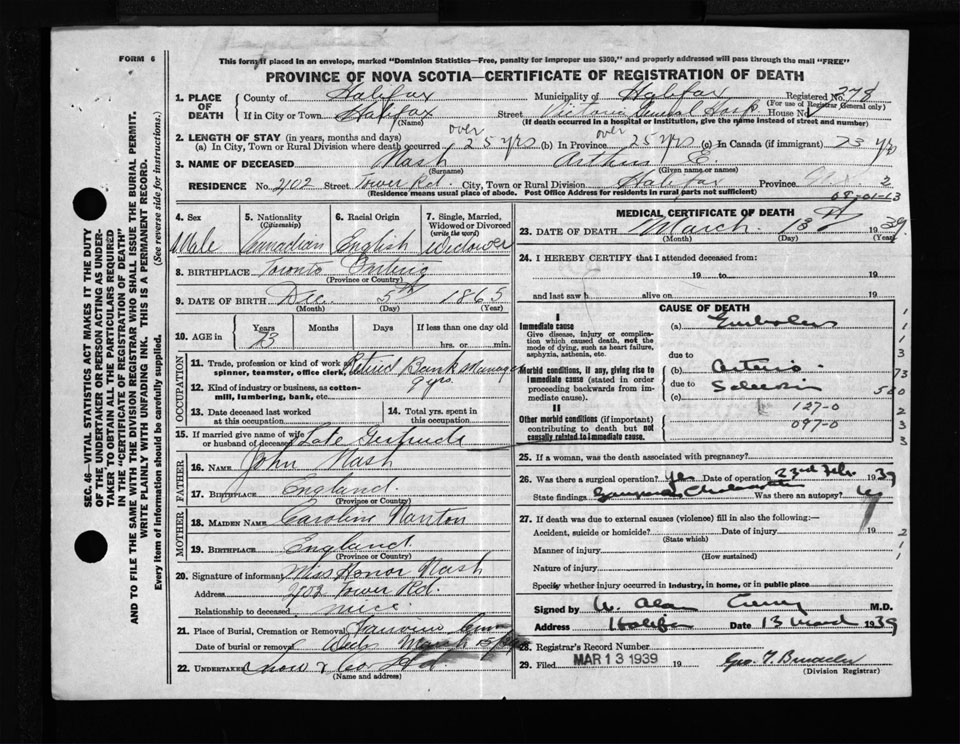 FORM 6
This form if placed in an envelope, marked "Dominion Statistics—Free, penalty for improper use $300," and properly addressed will pass through the mail "FREE"
PROVINCE OF NOVA SCOTIA—CERTIFICATE OF REGISTRATION OF DEATH
1. PLACE OF DEATH County of Halifax Municipality of Halifax Registered No. 278
(For use of Registrar General only)
If in City or Town Halifax Street Victoria General Hosp House No.
(Name) (If death occurred in a hospital or institution, give the name instead of street and number)
2. LENGTH OF STAY (in years, months and days)
(a) In City, Town or Rural Division where death occurred over 25 yrs (b) In Province over 25 yrs (c) In Canada (if immigrant) 73 yrs
3. NAME OF DECEASED Nash Arthur E.
(Surname) (Given name or names)
RESIDENCE No. 202 Street Tower Rd. City, Town or Rural Division Halifax Province N.S.
(Residence means usual place of abode. Post Office Address for residents in rural parts not sufficient)
4. Sex Male
5. Nationality (Citizenship) Canadian
6. Racial Origin English
7. Single, Married, Widowed or Divorced (write the word) Widower
8. BIRTHPLACE Toronto Ontario
(Province or Country)
9. DATE OF BIRTH Dec. 5th 1865
(Month) (Day) (Year)
10. AGE in Years 73 Months Days If less than one day old
hrs. or min.
OCCUPATION
11. Trade, profession or kind of work as spinner, teamster, office clerk, Retired Bank Manager
9 yrs.
12. Kind of industry or business, as cotton-mill, lumbering, bank, etc.
13. Date deceased last worked at this occupation
14. Total yrs. spent in this occupation
15. If married give name of wife or husband of deceased Late Gertrude
FATHER
16. NAME John Nash
17. BIRTHPLACE England
(Province or Country)
MOTHER
18. MAIDEN NAME Caroline
19. BIRTHPLACE England
(Province or Country)
20. Signature of informant Miss Honor Nash
Address 202 Tower Rd.
Relationship to deceased niece.
21. Place of Burial, Cremation or Removal
Date of burial or removal Wed. March 15
22. Undertaker Snow & Co Ltd
(Name and address)
MEDICAL CERTIFICATE OF DEATH
23. DATE OF DEATH March 13 1939
(Month) (Day) (Year)
24. I HEREBY CERTIFY that I attended deceased from:
19 to 19
and last saw h alive on 19
CAUSE OF DEATH
I
Immediate cause
Give disease, injury or complication which caused death, not the mode of dying, such as heart failure, asphyxia, asthenia, etc.
(a) Embolus
due to
Morbid conditions, if any, giving rise to immediate cause (stated in order proceeding backwards from immediate cause).
(b) Arterio-
due to Sclerosis
(c)
127-0
097-0
II
Other morbid conditions (if important) contributing to death but not causally related to immediate cause.
25. If a woman, was the death associated with pregnancy?
26. Was there a surgical operation? yes Date of operation 23rd Feb 1939
State findings Was there an autopsy?
27. If death was due to external causes (violence) fill in also the following:—
Accident, suicide or homicide? Date of injury 19
(State which)
Manner of injury
(How sustained)
Nature of injury
Specify whether injury occurred in industry, in home, or in public place
Signed by W. Alan Curry M.D.
Address Halifax Date 13 March 1939
28. Registrar's Record Number
29. Filed MAR 13 1939 19
(Division Registrar)
SEC. 46—VITAL STATISTICS ACT MAKES IT THE DUTY OF THE UNDERTAKER OR PERSON ACTING AS UNDERTAKER TO OBTAIN ALL THE PARTICULARS REQUIRED IN THE "CERTIFICATE OF REGISTRATION OF DEATH"
AND TO FILE THE SAME WITH THE DIVISION REGISTRAR WHO SHALL ISSUE THE BURIAL PERMIT.
WRITE PLAINLY WITH UNFADING INK. THIS IS A PERMANENT RECORD.
Every item of information should be carefully supplied. (See reverse side for instructions.)